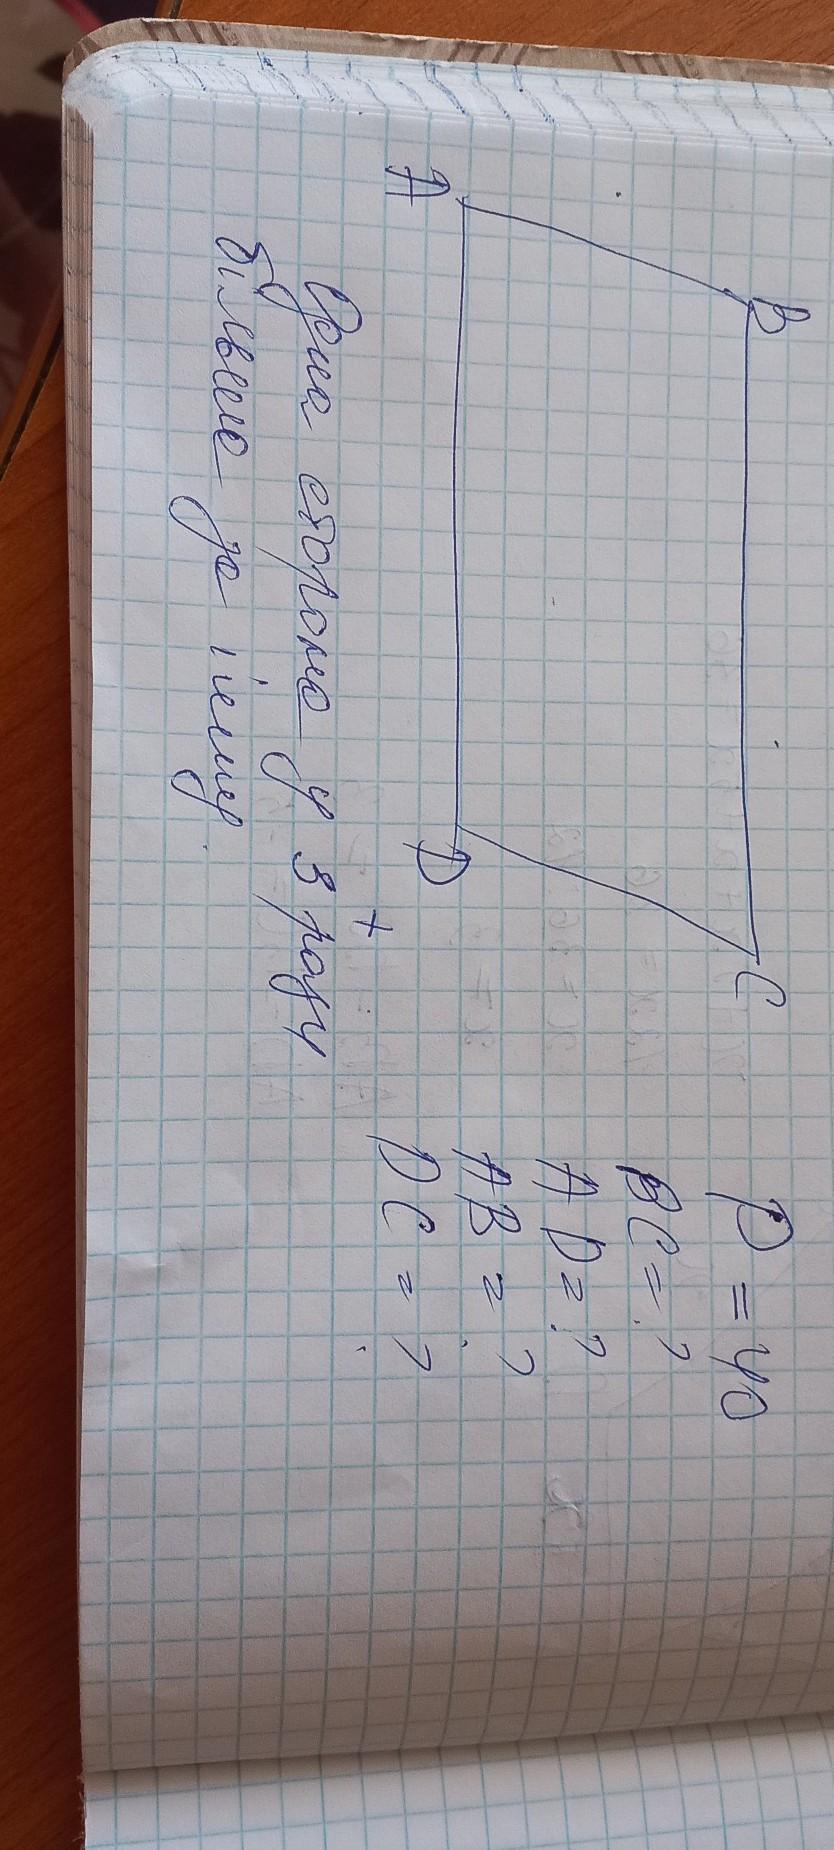 B
C
A
D
P = 40
BC = ?
AD = ?
AB = ?
DC = ?
Одна сторона у 3 разу
більша за іншу.